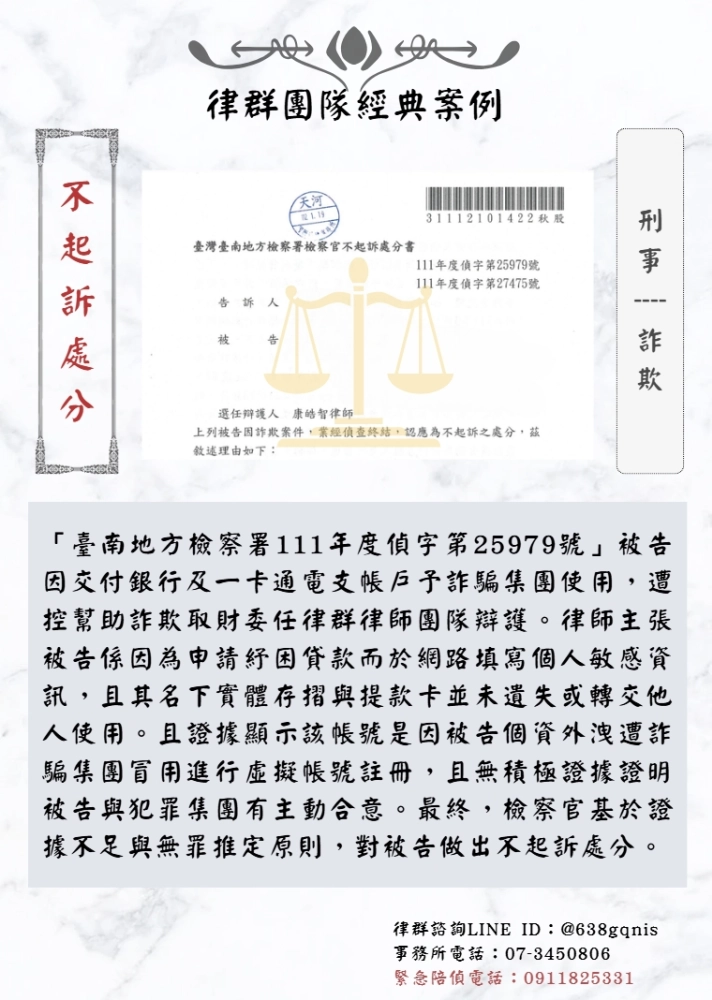 律群團隊經典案例
不起訴處分
刑事----詐欺
天河
31112101422秋股
臺灣臺南地方檢察署檢察官不起訴處分書
111年度偵字第25979號
111年度偵字第27475號
告訴人
被告
選任辯護人 康皓智律師
上列被告因詐欺案件，業經偵查終結，認應為不起訴之處分，茲
敘述理由如下：
「臺南地方檢察署111年度偵字第25979號」被告
因交付銀行及一卡通電支帳戶予詐騙集團使用，遭
控幫助詐欺取財委任律群律師團隊辯護。律師主張
被告係因為申請紓困貸款而於網路填寫個人敏感資
訊，且其名下實體存摺與提款卡並未遺失或轉交他
人使用。且證據顯示該帳號是因被告個資外洩遭詐
騙集團冒用進行虛擬帳號註冊，且無積極證據證明
被告與犯罪集團有主動合意。最終，檢察官基於證
據不足與無罪推定原則，對被告做出不起訴處分。
律群諮詢LINE ID：@638gqnis
事務所電話：07-3450806
緊急陪偵電話：0911825331